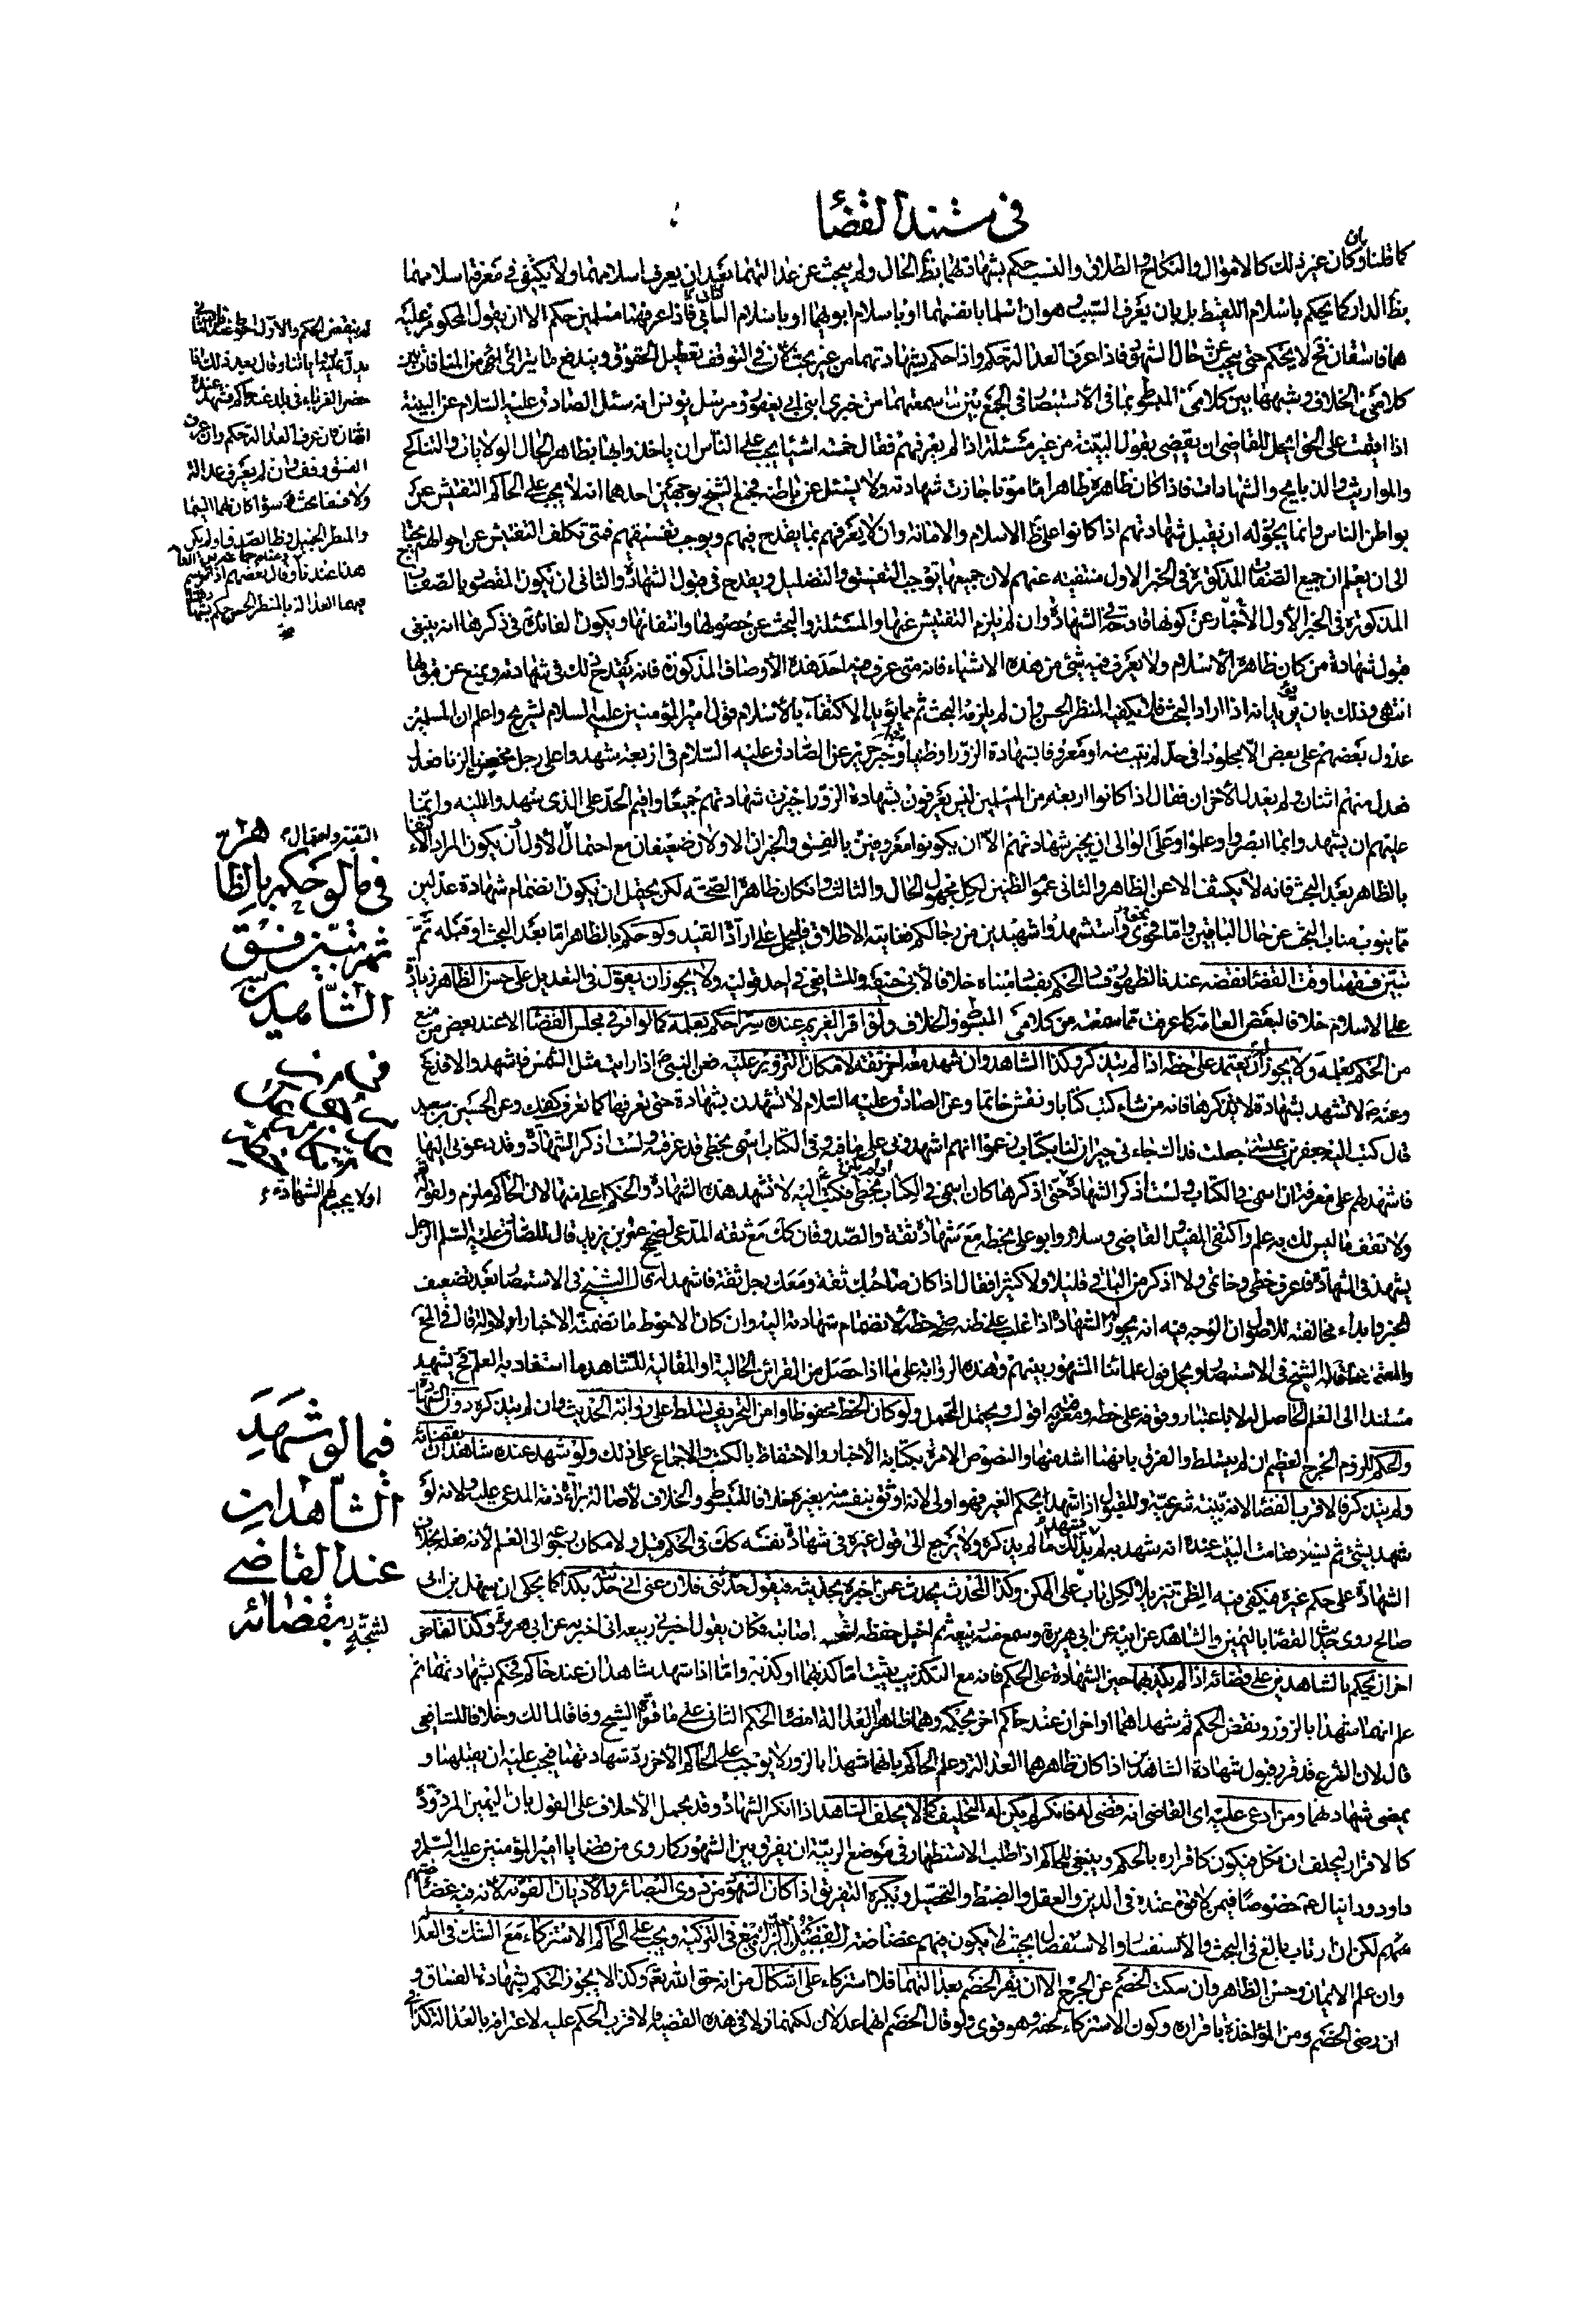 في مستند القضاء
كما قلنا وكان غير ذلك كالاموال والنكاح والطلاق والنسب حكم بشهادتهما بظ الحال ولم يبحث عن عدالتهما بعد ان يعرف اسلامهما ولا يكتفى في معرفة اسلامهما
بظ الدار كما يحكم باسلام اللقيط بل بان يعرف السبب وهو ان اسلما بانفسهما او باسلام ابويهما او باسلام السابي فاذا عرفهما مسلمين حكم الا ان يقول المحكوم عليه
هما فاسقان فح لا يحكم حتى يبحث عن حال الشهود فاذا عرف العدالة حكم واذا حكم بشهادتهما من غير بحث لان في التوقف تعطيل الحقوق ويندفع ما يترائى من المنافاة بين
كلامي الخلاف وشبهها بين كلامي المبسوط بما في الاستبصار في الجمع بين ما سمعتهما من خبري ابن ابي يعفور ومرسل يونس انه سئل الصادق عليه السلام عن البينة
اذا اقيمت على الحق ايحل للقاضي ان يقضي بقول البينة من غير مسئلة اذا لم يعرفهم فقال خمسة اشياء يجب على الناس ان ياخذوا بها بظاهر الحال الولايات والتناكح
والمواريث والذبايح والشهادات فاذا كان ظاهره ظاهرا مأمونا جازت شهادته ولا يسئل عن باطنه فجمع الشيخ بوجهين احدهما انه لا يجب على الحاكم التفتيش عن
بواطن الناس وانما يجوز له ان يقبل شهادتهم اذا كانوا على ظ الاسلام والامانة وان لا يعرفهم بما يقدح فيهم ويوجب تفسيقهم فمتى تكلف التفتيش عن احوالهم يحتاج
الى ان يعلم ان جميع الصفات المذكورة في الخبر الاول منتفية عنهم لان جميعها يوجب التفسيق والتضليل ويقدح في قبول الشهادة والثاني ان يكون المقصود بالصفات
المذكورة في الخبر الاول الاخبار عن كونها قادحة في الشهادة وان لم يلزم التفتيش عنها والمسئلة والبحث عن حصولها وانتفائها ويكون الفائدة في ذكرها انه ينبغي
قبول شهادة من كان ظاهره الاسلام ولا يعرف فيه شئ من هذه الاشياء فانه متى عرف فيه احد هذه الاوصاف المذكورة فانه يقدح ذلك في شهادته ويمنع من قبولها
انتهى وذلك بان يريد انه اذا اراد البحث فلا يكفيه المنظر الحسن وان لم يلزمه البحث ثم مما يؤيد الاكتفاء بالاسلام قول امير المؤمنين عليه السلام لشريح واعلم ان المسلمين
عدول بعضهم على بعض الا مجلودا في حد لم يتب منه او معروفا بشهادة الزور او ظنينا وخبر حريز عن الصادق عليه السلام في اربعة شهدوا على رجل محصن بالزنا فعدل
فعدل منهم اثنان ولم يعدل الاخران فقال اذا كانوا اربعة من المسلمين ليس يعرفون بشهادة الزور اجيزت شهادتهم جميعا واقيم الحد على الذي شهدوا عليه وانما
عليهم ان يشهدوا بما ابصروا وعلموا وعلى الوالي ان يجيز شهادتهم الا ان يكونوا معروفين بالفسق والخبران الاولان ضعيفان مع احتمال الاول ان يكون المراد الاكتفاء
بالظاهر بعد البحث فانه لا يكشف الا عن الظاهر والثاني عموم الظنين لكل مجهول الحال والثالث وان كان ظاهره الصحة لكن يحتمل ان يكون انضمام شهادة عدلين
مما ينوب مناب البحث عن حال الباقين واما نحو واستشهدوا شهيدين من رجالكم فغايته الاطلاق فليحمل على ارادة القيد ولو حكم بالظاهر اما بعد البحث او قبله ثم
تبين فسقهما وقت القضاء نقضه عندنا لظهور فساد الحكم بفساد مبناه خلافا لابي حنيفة والشافعي في احد قوليه ولا يجوز ان يعول في التعديل على حسن الظاهر زيادة
على الاسلام خلافا لبعض العامة كما عرفت مما سمعته من كلامي المبسوط والخلاف ولو اقر الغريم عنده سرا حكم بعلمه كما لو اقر في مجلس القضاء الا عند بعض من منع
من الحكم بعلمه ولا يجوز ان يعتمد على خطه اذا لم يتذكر وكذا الشاهد وان شهد معه اخر ثقة لامكان التزوير عليه فعن النبي ص اذا رايت مثل الشمس فاشهد والا فدع
وعنه ص لا تشهد بشهادة لا تذكرها فانه من شاء كتب كتابا ونقش خاتما وعن الصادق عليه السلام لا تشهدن بشهادة حتى تعرفها كما تعرف كفك وعن الحسين بن سعيد
قال كتب اليه جعفر بن عيسى جعلت فداك جاءني جيران لنا بكتاب زعموا انهم اشهدوني على ما فيه وفي الكتاب اسمي بخطي قد عرفته ولست اذكر الشهادة وقد دعوني اليها
فاشهد لهم على معرفتي ان اسمي في الكتاب ولست اذكر الشهادة او لا تجب لهم الشهادة حتى اذكرها كان اسمي في الكتاب بخطي او لم يكن فكتب اليه لا تشهد هذه الشهادة والحكم اعلى منها لان الحاكم ملزم ولقوله تع
ولا تقف ما ليس لك به علم واكتفى المفيد والقاضي وسلار وابو علي بخطه مع شهادة ثقة والصدوقان كك مع ثقة المدعي لصحيح عمر بن يزيد قال للصادق عليه السلام الرجل
يشهدني الشهادة فاعرف خطي وخاتمي ولا اذكر من الباقي قليلا ولا كثيرا فقال اذا كان صاحبك ثقة ومعك رجل ثقة فاشهد له قال الشيخ في الاستبصار بعد تضعيف
الخبر وابداء مخالفته للاصول ان الوجه فيه انه يجوز له الشهادة اذا غلب على ظنه صحة خطه لانضمام شهادته اليه وان كان الاحوط ما تضمنته الاخبار الاولة قال في المخ
والمعتمد ما قاله الشيخ في الاستبصار ويحمل قول علمائنا المشهور بينهم وهذه الرواية على ما اذا حصل من القرائن الحالية او المقالية للشاهد ما استفاد به العلم فح يشهد
مستندا الى العلم الحاصل له لا باعتبار وقوفه على خطه ومعرفته به اقول ويحتمل التحمل ولو كان الخط محفوظا وامن التحريف تسلط على رواية الحديث وان لم يتذكره دون الشهادة
والحكم للزوم الحرج العظيم ان لم يتسلط والفرق بانهما اشد منها والنصوص الامرة بكتابة الاخبار والاحتفاظ بالكتب والاجماع على ذلك ولو شهد عنده شاهدان بقضائه
ولم يتذكر فالاقرب القضاء لانه بينة شرعية وللقبول اذا شهدا بحكم الغير فهو اولى لانه اوثق بنفسه منه بغيره خلافا للمبسوط والخلاف لاصالة براءة ذمة المدعى عليه ولانه لو
شهد بشئ ثم نسيه فقامت البينة عنده انه شهد به لم يشهد بذلك ما لم يتذكره ولا يرجع الى قول غيره في شهادة نفسه كك في الحكم قبل ولامكان رجوعه الى العلم لانه فعله بخلاف
الشهادة على حكم غيره فيكفي فيه الظن تنزيلا لكل باب على الممكن وكذا المحدث يحدث عمن اخبره بحديثه فيقول حدثني فلان عني اني حدثته بكذا كما يحكى ان سهيل بن ابي
صالح روى حديث القضاء باليمين والشاهد عن ابيه عن ابي هريرة وسمع منه ربيعة ثم اختل حفظه لشجة اصابته فكان يقول اخبرني ربيعة اني اخبرته عن ابي هريرة وكذا القاضي
اخران يحكم بالشاهدين على قضائه اذا لم يكذبهما حين الشهادة على الحكم فانه مع التكذيب يثبت اما كذبهما او كذبه واما اذا شهد شاهدان عند حاكم فحكم بشهادتهما ثم
علم انهما شهدا بالزور ونقض الحكم ثم شهدا هما او اخران عند حاكم اخر بحكمه وهما ظاهرا العدالة امضا الحكم الثاني على ما قواه الشيخ وفاقا لمالك وخلافا للشافعي
قال لان الشرع قد قرر قبول شهادة الشاهدين اذا كان ظاهرهما العدالة وعلم الحاكم بانهما شهدا بالزور لا يوجب على الحاكم الاخر رد شهادتهما فيجب عليه ان يقبلهما و
يمضي شهادتهما ومن ادعى عليه اي القاضي انه قضى له فانكر لم يكن له التحليف كما لا يحلف الشاهد اذا انكر الشهادة وقد يحتمل الاحلاف على القول بان اليمين المردودة
كالاقرار ليحلف ان نكل فيكون كاقراره بالحكم وينبغي للحاكم اذا طلب الاستظهار في موضع الريبة ان يفرق بين الشهود كما روى من قضايا امير المؤمنين عليه السلم و
داود ودانيال ع خصوصا فيمن لا قوة عنده في الدين والعقل والضبط والتحصيل ويكره التفريق اذا كان الشهود من ذوي البصائر والاديان القوية لانه فيه غضاضة
منهم لكن ان ارتاب بالغ في البحث والاستفسار والاستفصال بحيث لا يكون فيهم غضاضة الفصل الرابع في التزكية ويجب على الحاكم الاستزكاء مع الشك في العدالة
وان علم الايمان وحسن الظاهر وان سكت الخصم عن الجرح الا ان يقر الخصم بعدالتهما فلا استزكاء على اشكال من انه حق الله تع وكذا لا يجوز الحكم بشهادة الفساق و
ان رضى الخصم ومن المؤاخذة باقراره وكون الاستزكاء لحقه وهو قوى ولو قال الخصم انهما عدلان لكنهما زلا في هذه القضية فالاقرب الحكم عليه لاعترافه بالعدالة
لم ينقض الحكم والاول احوط عندنا
حضر الغرباء في بلد عند حاكم فشهد عنده
اثنان فان عرف العدالة حكم وان عرف
الفسق وقف وان لم يعرف عدالة
ولا فسقا بحث وسواء كان لهما السيما
والمنظر الجميل وظ الصدق او لم يكن
هذا عندنا وقال بعضهم اذا توسم
فيهما العدالة بالمنظر الحسن حكم بشهادتهما
فيما لو حكم بالظاهر
ثم تبين فسق
الشاهدين
او لا يجب لهم الشهادة
فيما لو شهد
الشاهدان
عند القاضي
بقضائه
لشجة